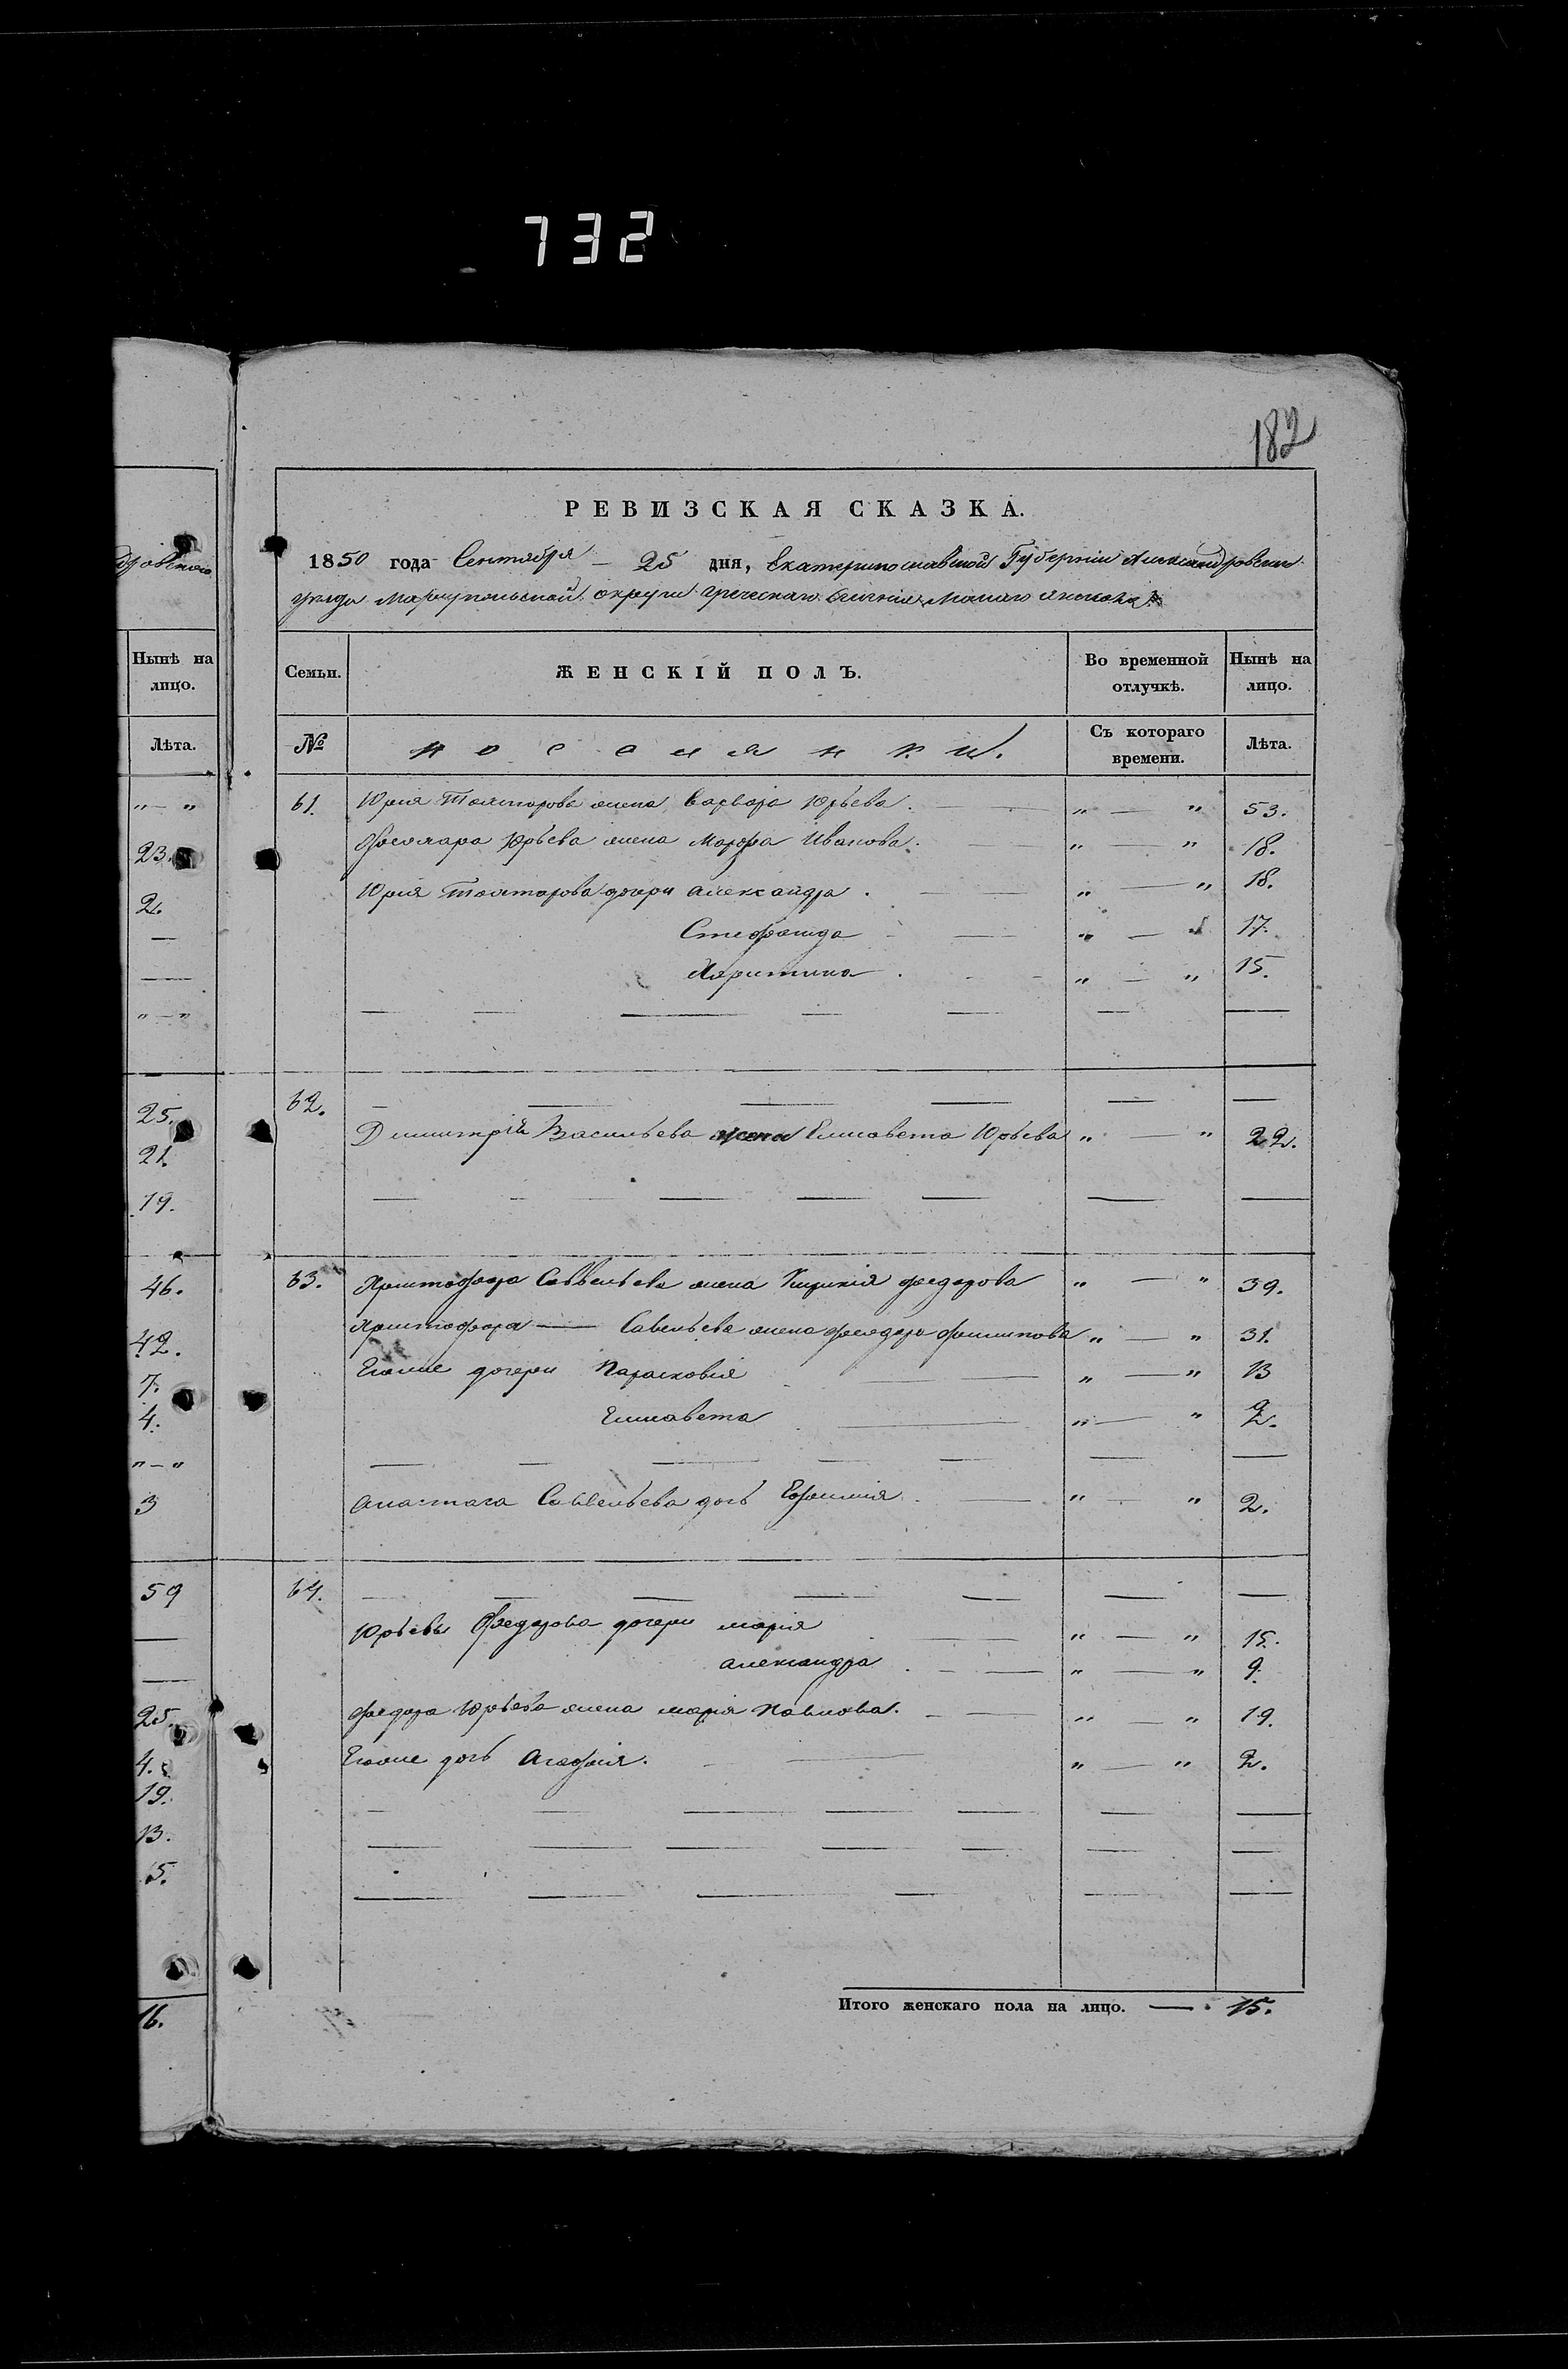 732
182
РЕВИЗСКАЯ СКАЗКА.
1850 года Сентября — 25 дня, Екатеринославской Губерніи Александровскаго
уезда Мариупольской округи греческаго селенія Малаго Янисоля
дровскаго
Нынѣ на лицо.
Лѣта.
" — "
23.
2.
" — "
25.
21.
19.
46.
42.
7.
4.
" — "
3
59
25.
4.
19.
13.
5.
16.
Семьи. ЖЕНСКІЙ ПОЛЪ. Во временной отлучкѣ. Нынѣ на лицо.
№ поселянки. Съ котораго времени. Лѣта.
61. Юрія жена Варвара Юрьева. " — " 53.
Юрьева жена Марфа Иванова. " — " 18.
Юрія дочери Александра. " — " 18.
Стефанида " — " 17.
Харитина. " — " 15.
62.
Димитрія Васильева жена Елисавета Юрьева " — " 22.
63. Христофора Саввельева жена Кирикія Федорова " — " 39.
Христофора — Савельева жена Филипова " — " 31.
Егоже дочери Парасковія " — " 13
Елисавета " — " 2.
Анастаса Саввельева дочь Ефимія. " — " 2.
64.
Юрьева Федорова дочери Марія " — " 15.
Александра. " — " 9.
Федора Юрьева жена Марія Павлова. " — " 19.
Егоже дочь Агафія. " — " 2.
Итого женскаго пола на лицо. — 15.